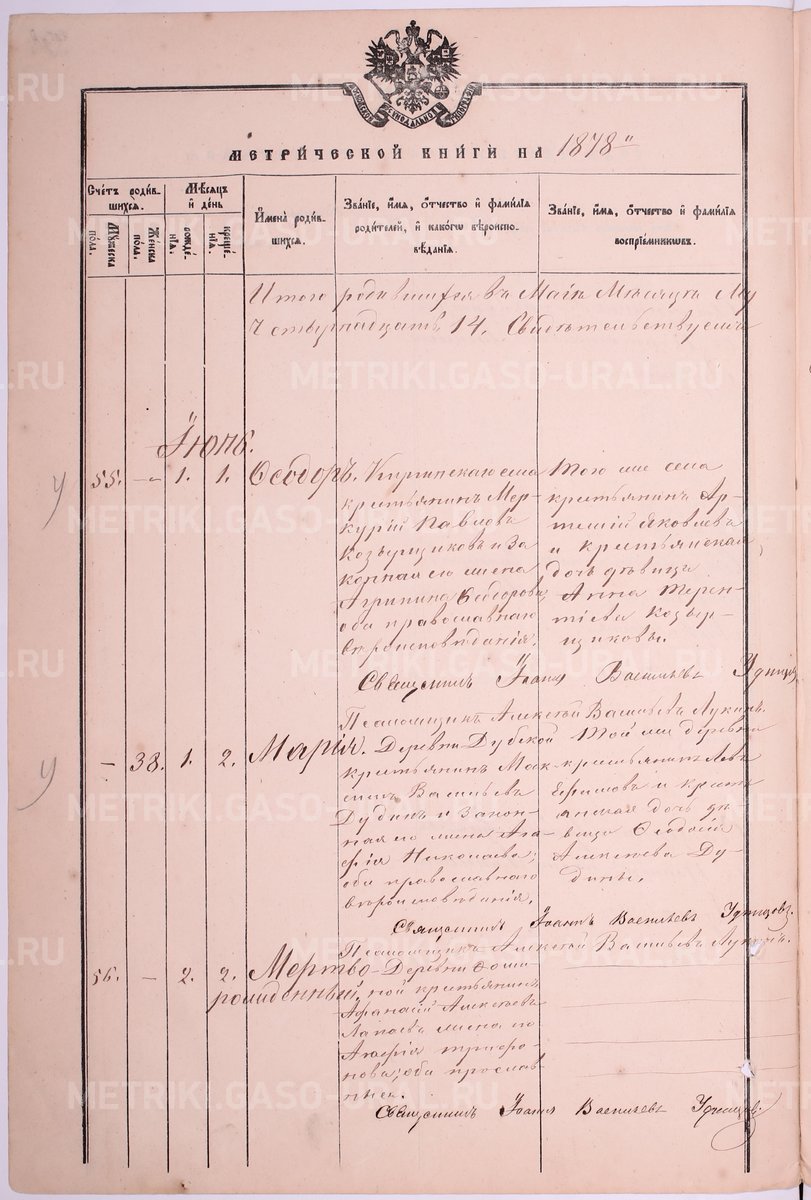 МЕТРИ́ЧЕСКОЙ КНИ́ГИ НА 1878
Сче́тъ роди́в-
шихся.
Мѣ́сяцъ
и́ де́нь
Му́жеска
по́ла.
Же́нска
по́ла.
рожде́-
нія.
креще́-
нія.
И҆мена̀ роди́в-
шихся.
Зва́ніе, и҆́мя, о҆́тчество и҆ фами́лія
роди́телей, и҆ како́гѡ вѣроиспо-
вѣ́данія.
Зва́ніе, и҆́мя, о҆́тчество и҆ фами́лія
воспріе́мникѡвъ.
Итого родившихся въ Маѣ Мѣсяцѣ Му
Четырнадцать 14. Свидѣтельствуемъ
Іюнь.
55. — 1. 1. Ѳеодоръ.
крестьянинъ Мер-
курій Павловъ
Козырщиковъ и За
конная его жена
Агрипина Ѳеодорова
оба православнаго
вѣроисповѣданія.
Того же села
крестьянинъ Ар-
темій Яковлевъ
и крестьянская
дочь дѣвица
Анна Терен-
тіева Козыр-
щиковы.
Священникъ Іоаннъ Васильевъ Удинцовъ
Псаломщикъ Алексѣй Васильевъ Лукинъ.
— 38. 1. 2. Марія.
Деревни Дубской
крестьянинъ Мак-
симъ Васильевъ
Дудинъ и Закон-
ная его жена Ага-
фія Николаева;
оба православнаго
вѣроисповѣданія.
Той же деревни
крестьянинъ Левъ
Ефимовъ и кресть
янская дочь дѣ
вица Ѳеодосія
Алексѣева Ду-
дины.
Священникъ Іоаннъ Васильевъ Удинцовъ.
Псаломщикъ Алексѣй Васильевъ Лукинъ.
56. — 2. 2. Мертво-
рожденный.
Деревни Ѳоми
ной крестьянинъ
Афанасій Алексѣевъ
Лапаевъ жена его
Агафія Трифо-
нова; оба православ
ные.
Священникъ Іоаннъ Васильевъ Удинцовъ.
METRIKI.GASO-URAL.RU